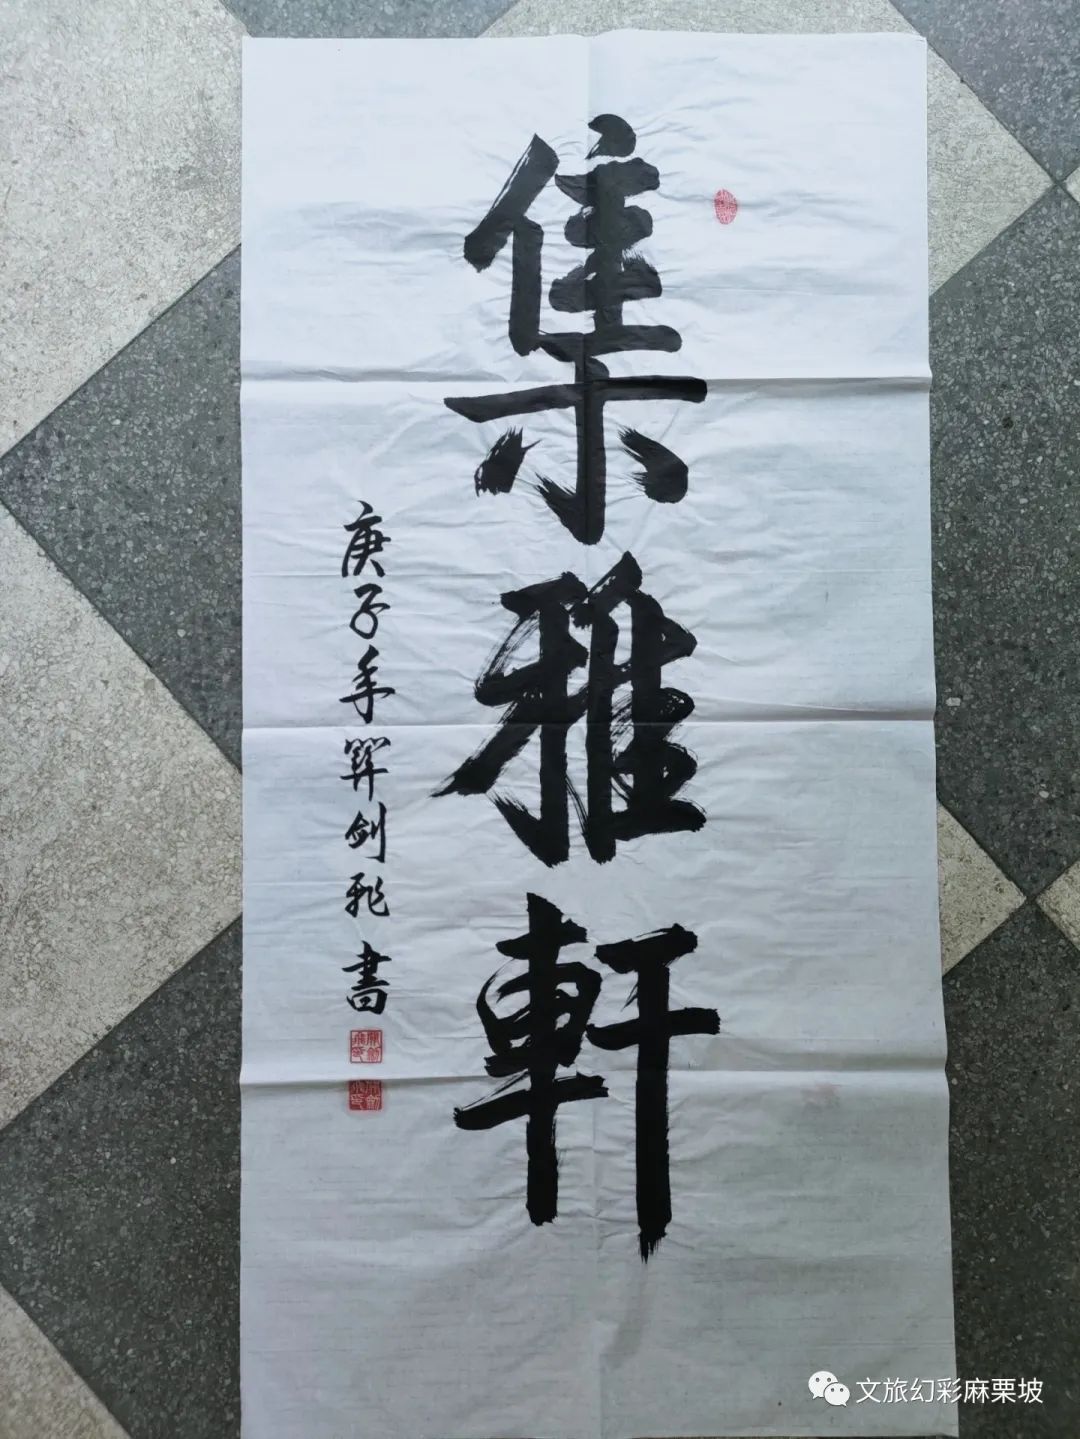 集雅軒
庚子年剑飛書
文旅幻彩麻栗坡